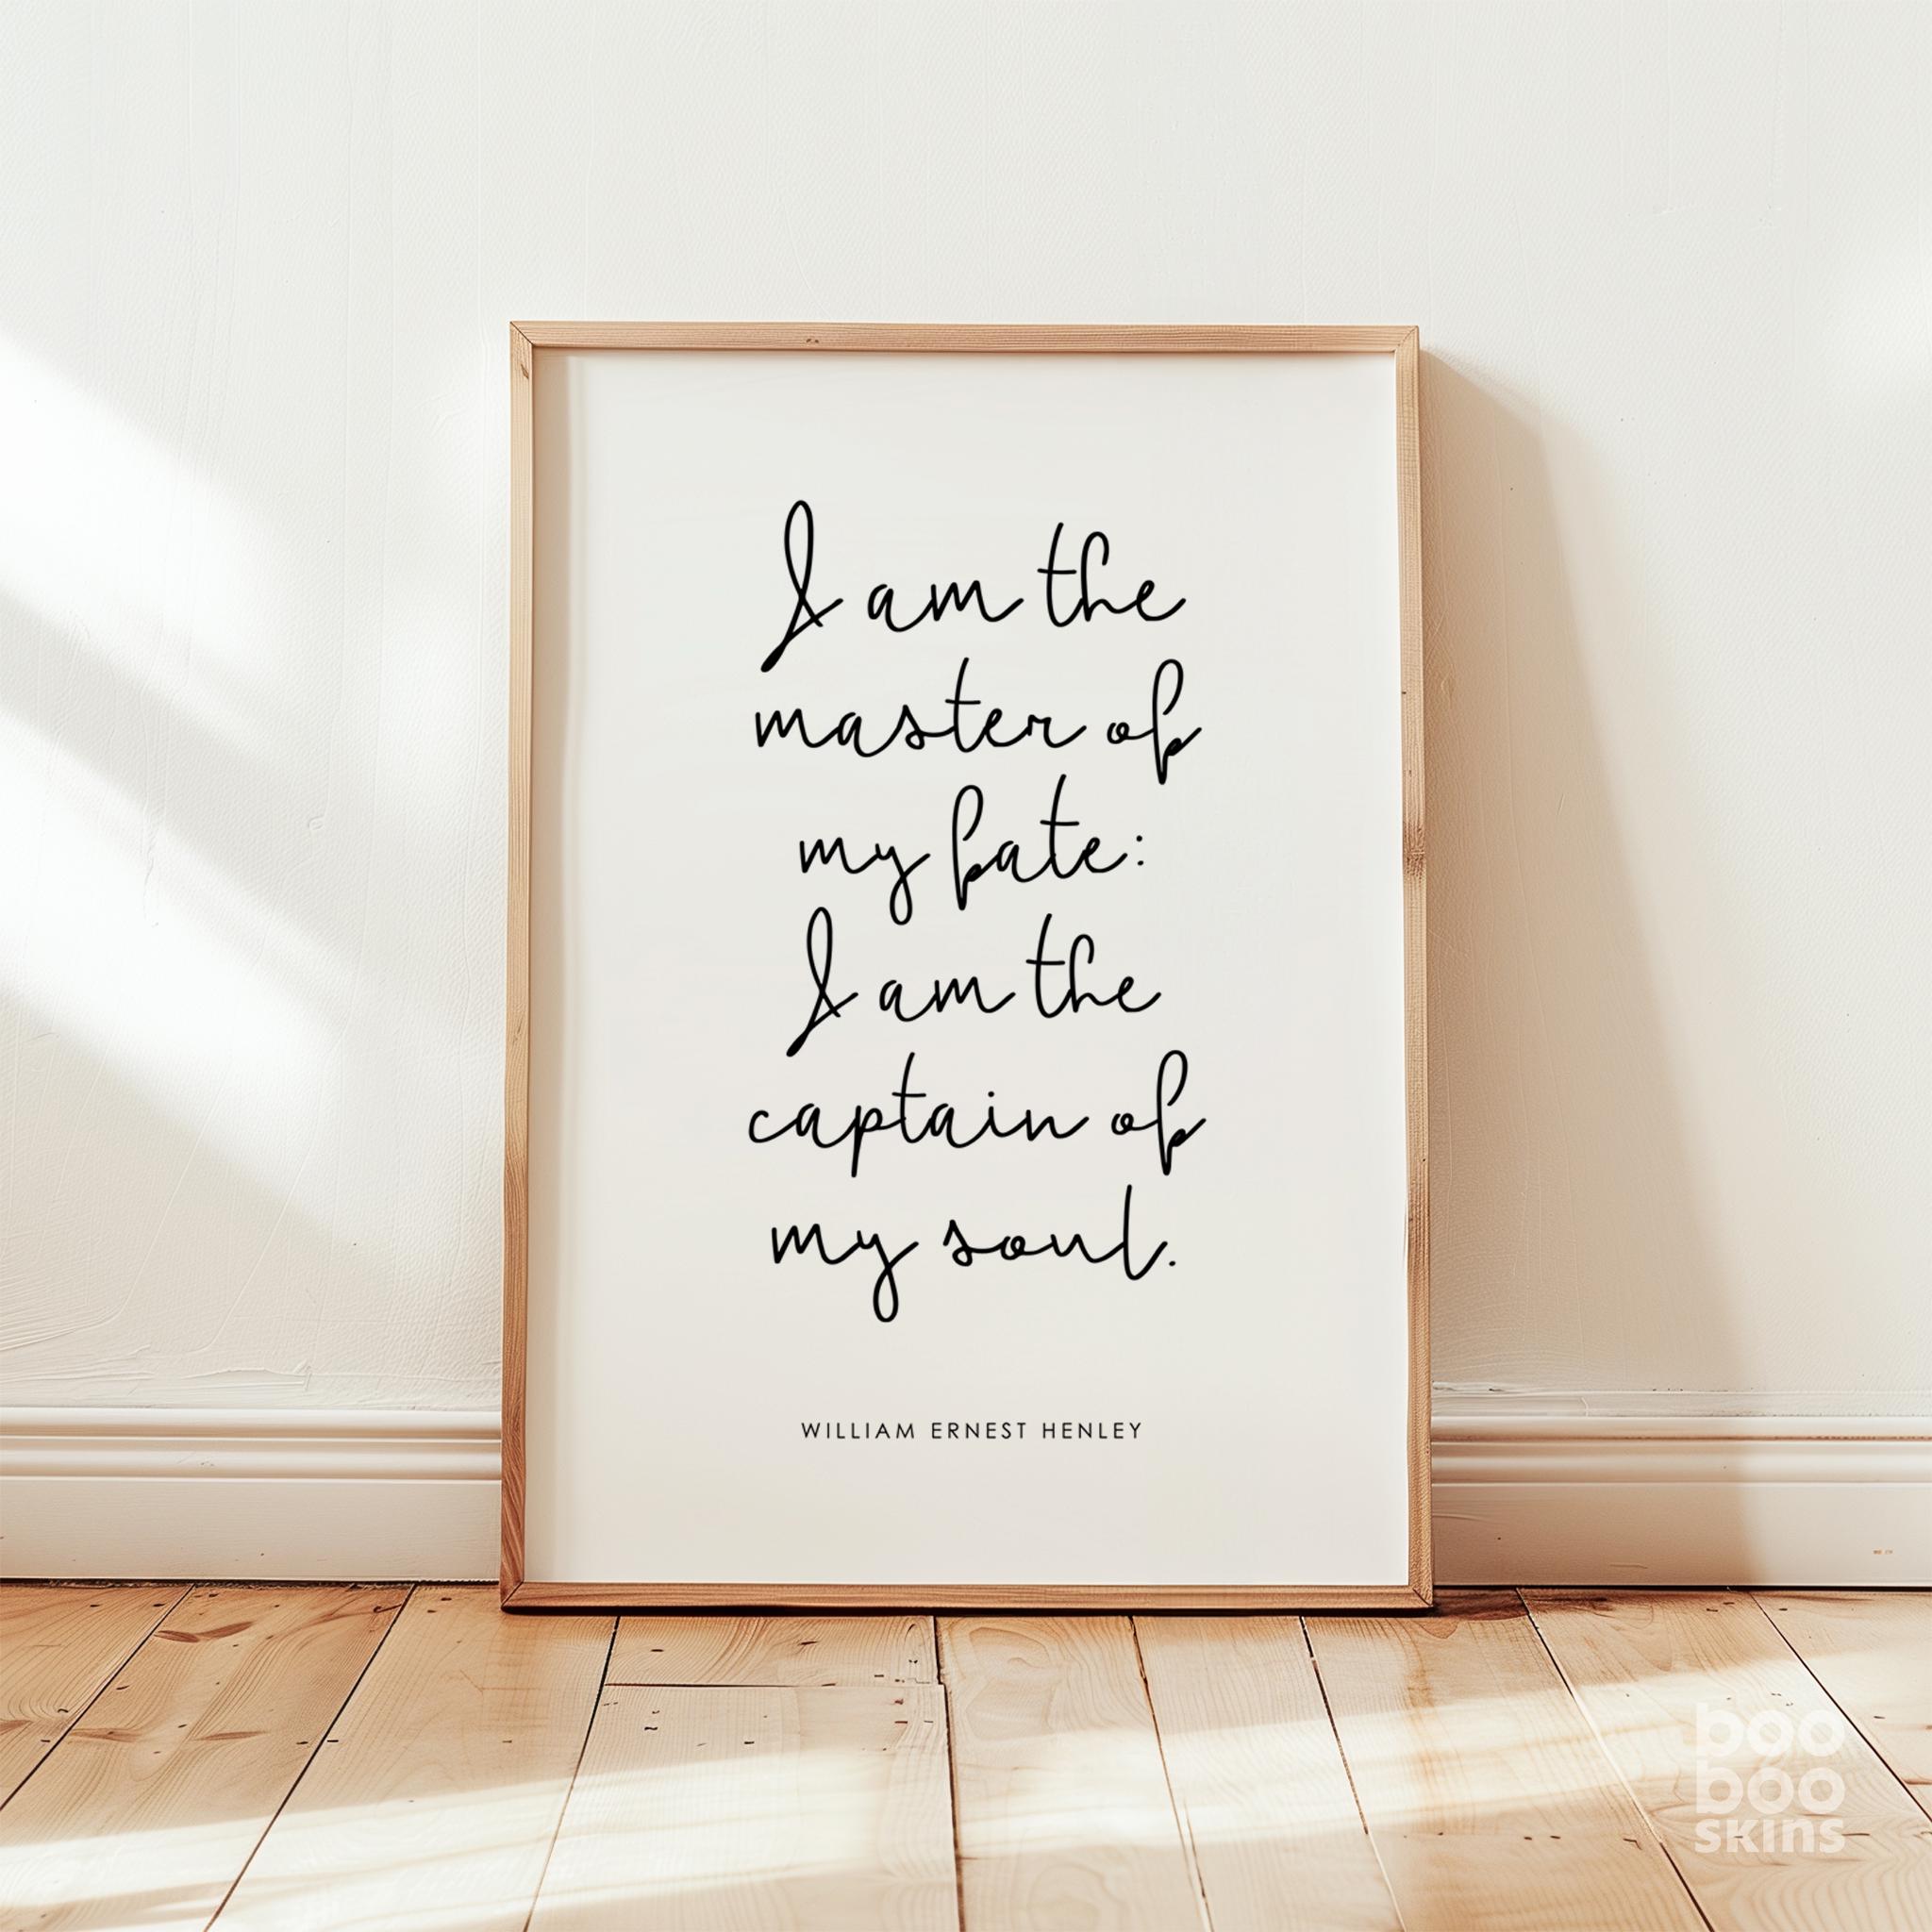 I am the
master of
my fate:
I am the
captain of
my soul.
WILLIAM ERNEST HENLEY
boo
boo
skins